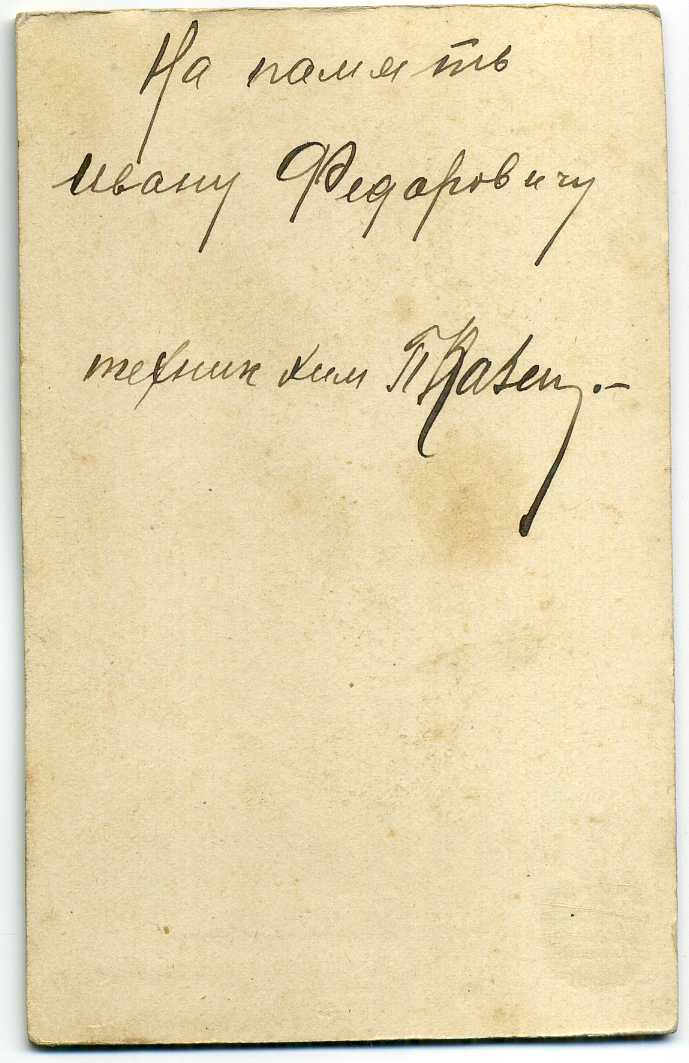 На память
Ивану Федоровичу
техник хим П Кравец.-